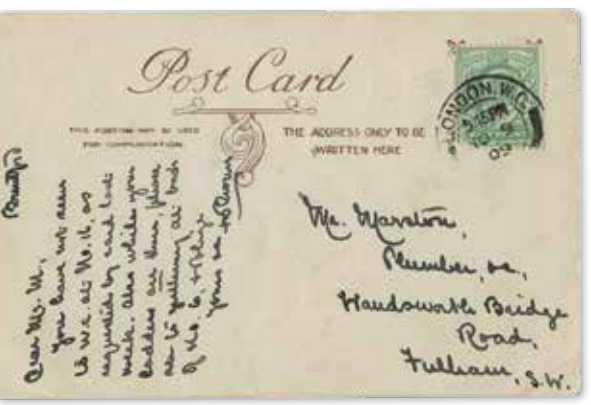 Post Card
THIS PORTION MAY BE USED
FOR COMMUNICATION.
THE ADDRESS ONLY TO BE
WRITTEN HERE
LONDON. W.C.
5.15PM
09
Brentford
Dear Mr. M.,
you have not seen
to w.c. at No. 16, as
requested by card last
week. Also while your
ladders are there, please
see to guttering at back
of No. 6, & oblige
yours
Mr. Marston,
Plumber, &c.,
Wandsworth Bridge
Road,
Fulham, S.W.